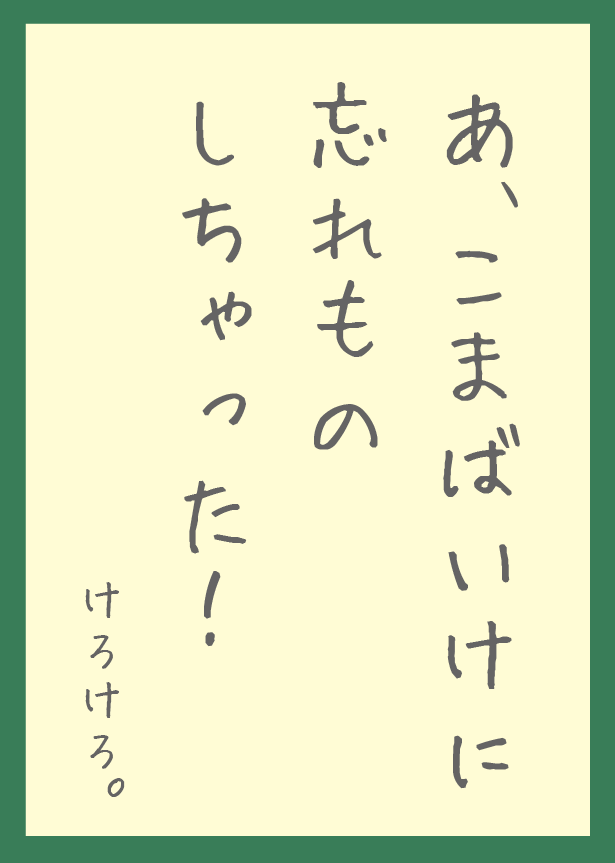 あ、こまばいけに
忘れもの
しちゃった！
けろけろ。